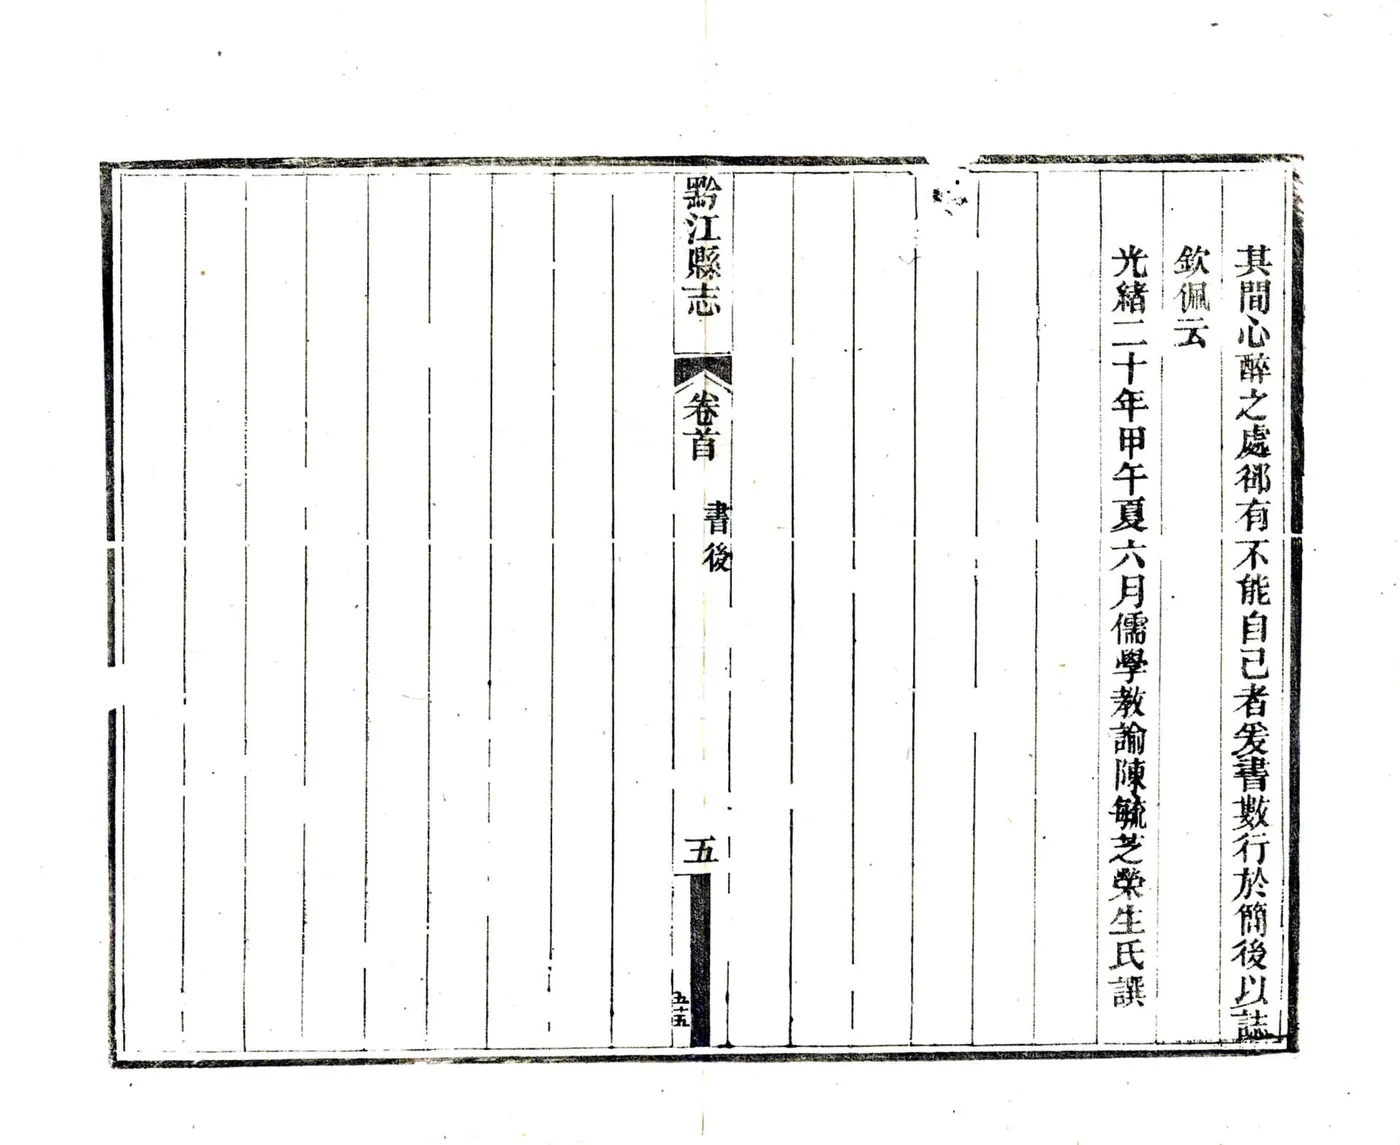 其間心醉之處郤有不能自己者爰書數行於簡後以誌
欽佩云
光緒二十年甲午夏六月儒學教諭陳毓芝榮生氏譔
黔江縣志
卷首
書後
五
五十五